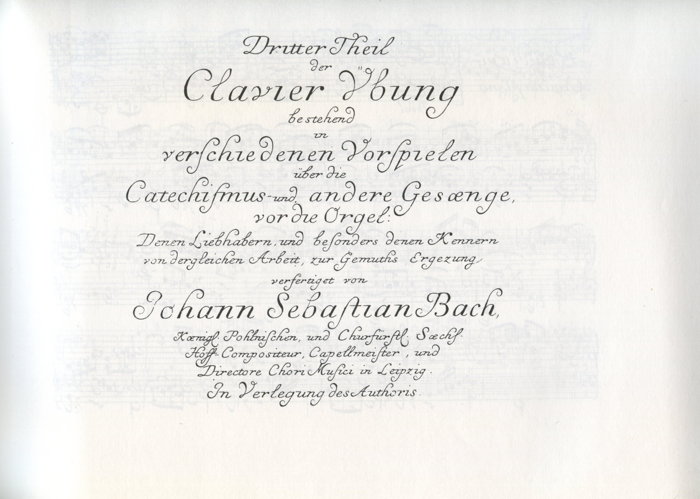 Dritter Theil
der
Clavier Übung
bestehend
in
verschiedenen Vorspielen
über die
Catechismus-und andere Gesænge,
vor die Orgel:
Denen Liebhabern, und besonders denen Kennern
von dergleichen Arbeit, zur Gemuths Ergezung
verfertiget von
Johann Sebastian Bach,
Kœnigl. Pohlnischen, und Churfürstl. Sæchs.
Hoff-Compositeur, Capellmeister, und
Directore Chori Musici in Leipzig.
In Verlegung des Authoris.